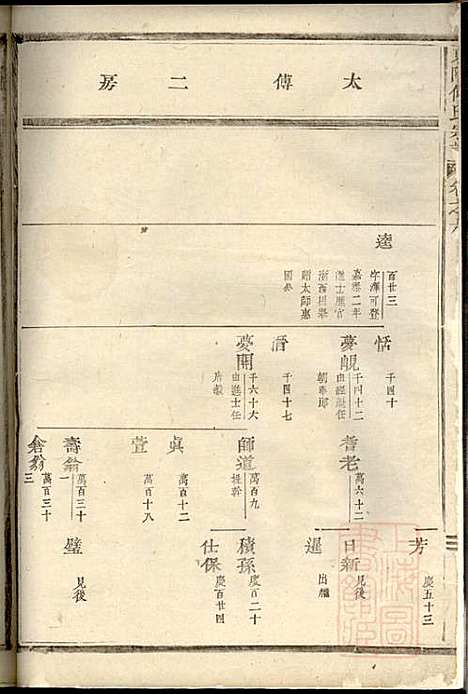 太傅二房
逵
百廿三
字澤可登
嘉泰二年
進士歷官
浙西提舉
贈太師惠
國公
恬
千四十
夢覘
千四十二
由經
朝奉郎
滑
千四十七
夢開
千六十六
由進士任
耆老
萬六十二
師道
萬百九
提幹
眞
萬百十二
萱
萬百十八
壽翁
萬百三十一
倉翁
萬百三十三
芳
慶五十三
日新
見後
暹
出繼
積孫
慶百二十
仕保
慶百廿四
璧
見後